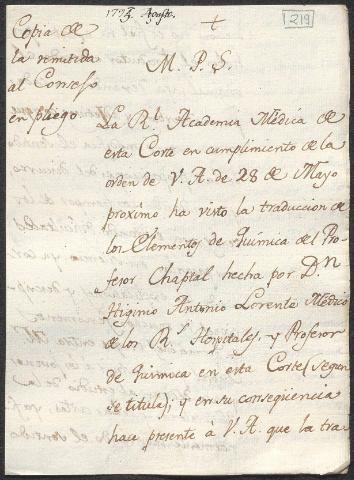 1794. Agosto.
219
Copia de
la remitida
al Consejo
en pliego
M. P. S.
La Rl. Academia Médica de
esta Corte en cumplimiento de la
orden de V. A. de 28 de Mayo
proximo ha visto la traduccion de
los Elementos de Quimica del Pro-
fesor Chaptal hecha por D.n
Higinio Antonio Lorente Médico
de los R.s Hospitales, y Profesor
de Quimica en esta Corte (segun
se titula); y en su conseqüencia
hace presente à V. A. que la tra-